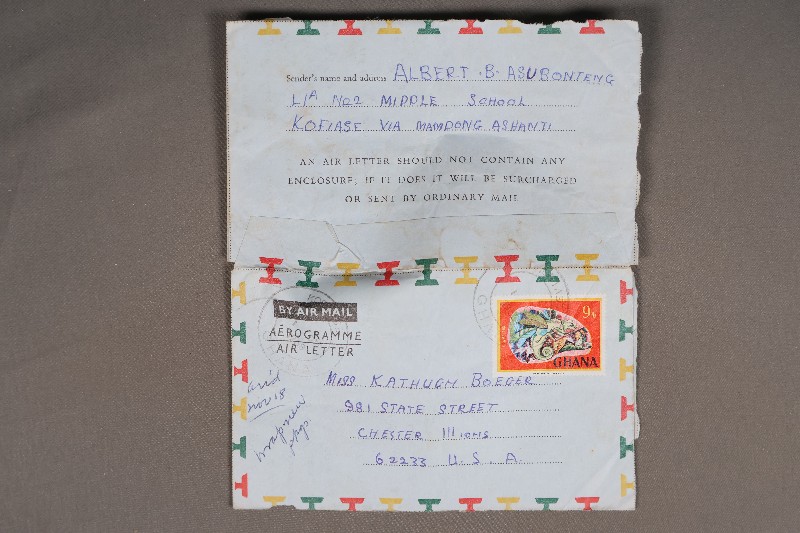 Sender's name and address ALBERT B. ASUBONTENG
L/A No2 MIDDLE SCHOOL
KOFIASE VIA MAMPONG ASHANTI
AN AIR LETTER SHOULD NOT CONTAIN ANY
ENCLOSURE; IF IT DOES IT WILL BE SURCHARGED
OR SENT BY ORDINARY MAIL
BY AIR MAIL
AÉROGRAMME
AIR LETTER
9
GHANA
MISS KATHUGM BOEGER
981 STATE STREET
CHESTER Illions
62233 U.S.A.
nov 18